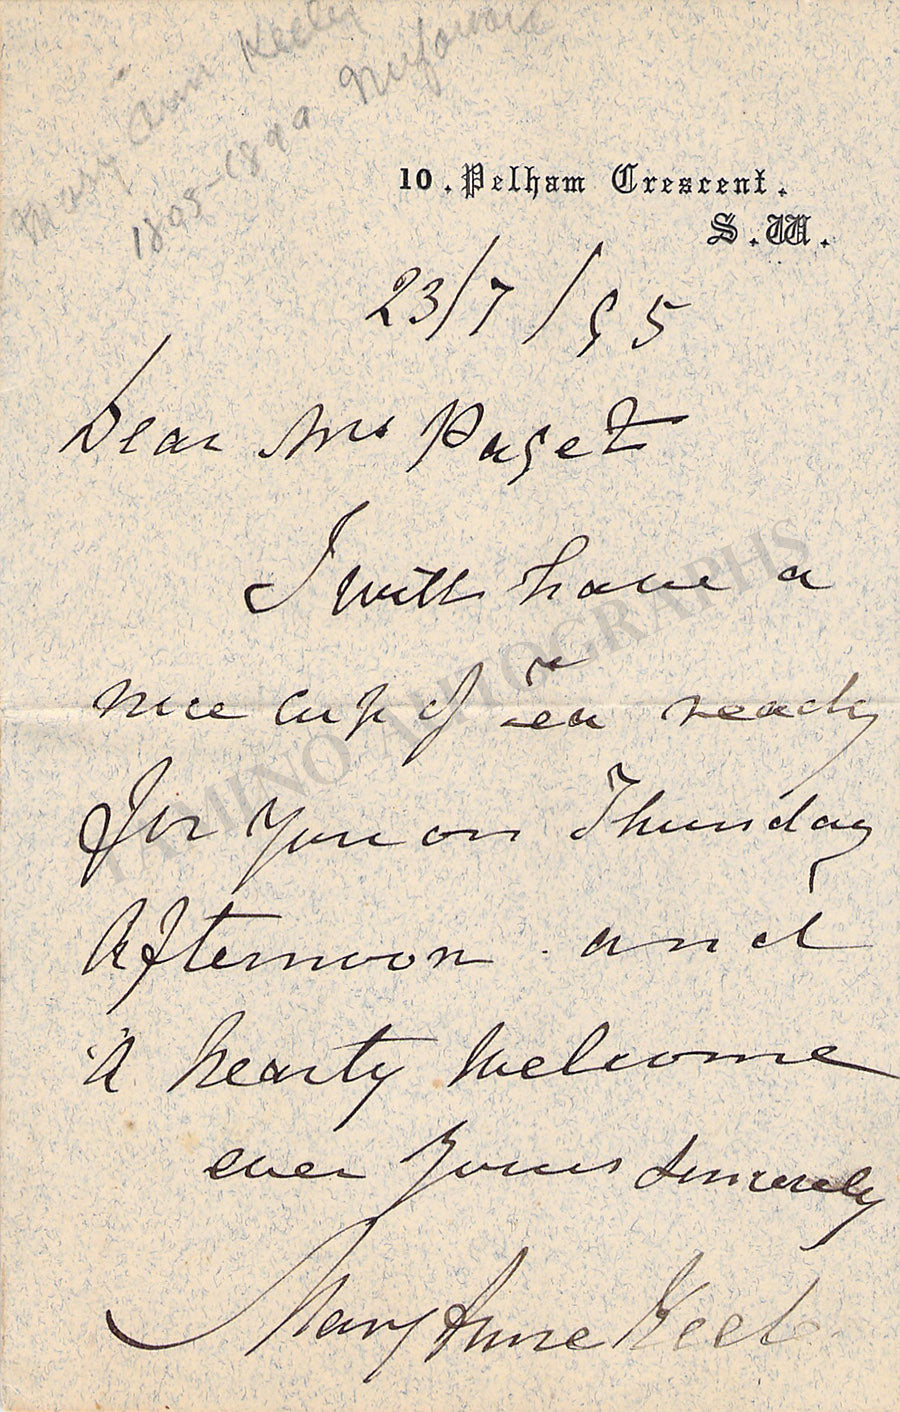 Mary Ann Keeley
1805-1899
10. Pelham Crescent.
S.W.
23/7/95
Dear Mrs Paget
I will have a
nice cup of Tea ready
for you on Thursday
Afternoon and
"A hearty Welcome
ever yours sincerely
Mary Anne Keeley
TAMINO AUTOGRAPHS